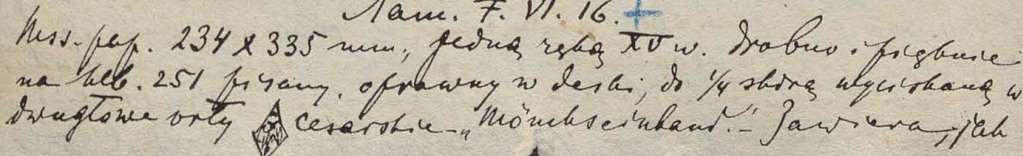 Nam. F. VI. 16.
Mss. pap. 234 x 335 mm., jedną ręką XV w. drobno i pięknie
na kk. 251 pisany, oprawny w deski, do 1/4 skórą wyciskaną w
dwugłowe orły cesarskie - "Mönchseinband." - Zawiera, jak